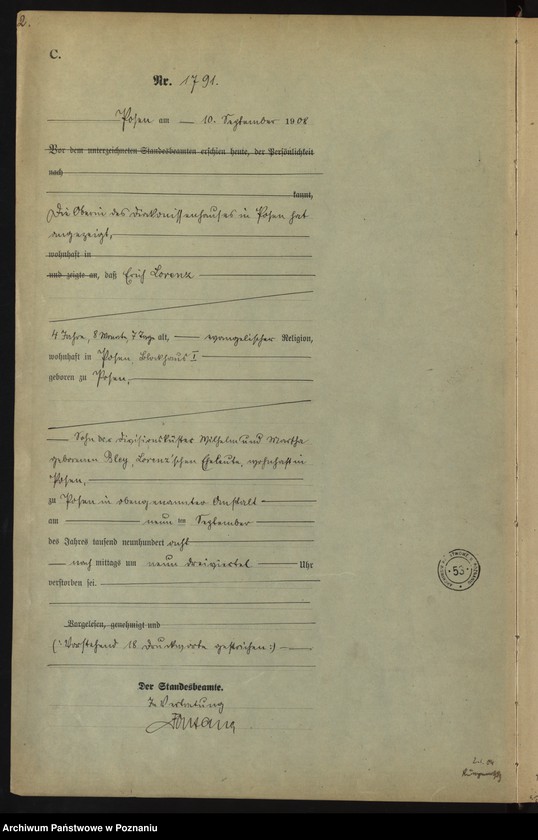 2.
C.
Nr. 1791.
Posen am 10. September 1908
Vor dem unterzeichneten Standesbeamten erschien heute, der Persönlichkeit
nach
kannt,
Die Oberin des Diakonissenhauses in Posen hat
angezeigt,
wohnhaft in
und zeigte an, daß Erich Lorenz
4 Jahre, 8 Monate, 7 Tage alt, evangelischer Religion,
wohnhaft in Posen, Blockhaus I
geboren zu Posen,
Sohn der Divisionsküster Wilhelm und Martha
geborenen Bley, Lorenz'schen Eheleute, wohnhaft in
Posen,
zu Posen in obengenannter Anstalt
am neun ten September
des Jahres tausend neunhundert acht
nach mittags um neun dreiviertel Uhr
verstorben sei.
Vorgelesen, genehmigt und
(: Vorstehend 18 Druckworte gestrichen :)
Der Standesbeamte.
In Vertretung
53
Archiwum Państwowe w Poznaniu